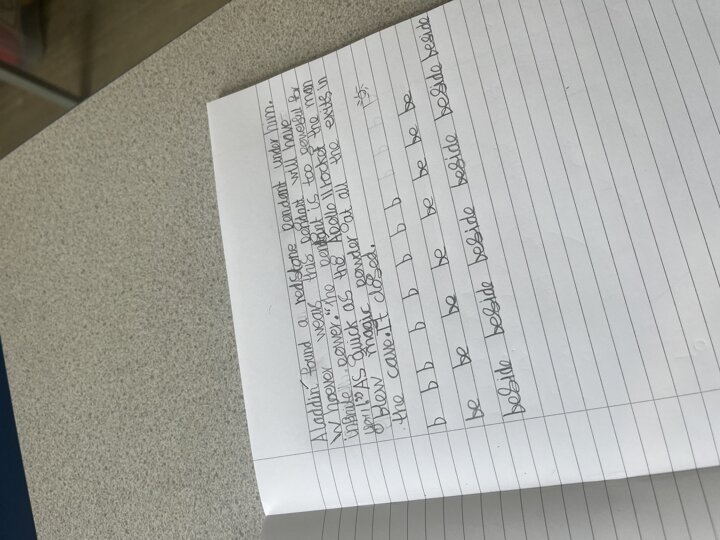 Aladdin found a redstone pendant under him.
Whoever wears this pendant will have
infinate power." The pendant is too powerful for
you!" As quick as the Apollo 11 rocket the man
blew magic powder at all the exits in
the cave. It closed.
b b b b b b b b
be be be be be be be be
beside beside beside beside beside beside